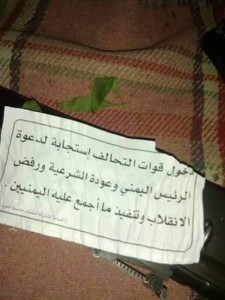 دخول قوات التحالف استجابة لدعوة
الرئيس اليمني وعودة الشرعية ورفض
الانقلاب وتنفيذ ما أجمع عليه اليمنيين .